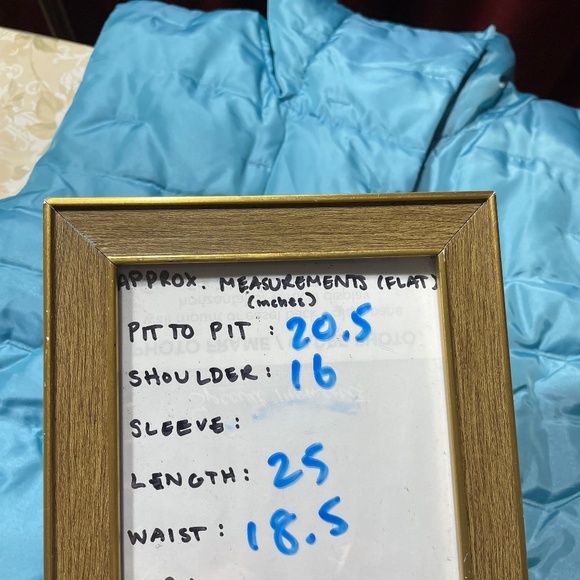 APPROX. MEASUREMENTS (FLAT)
(inches)
PIT TO PIT : 20.5
SHOULDER: 16
SLEEVE:
LENGTH: 25
WAIST: 18.5